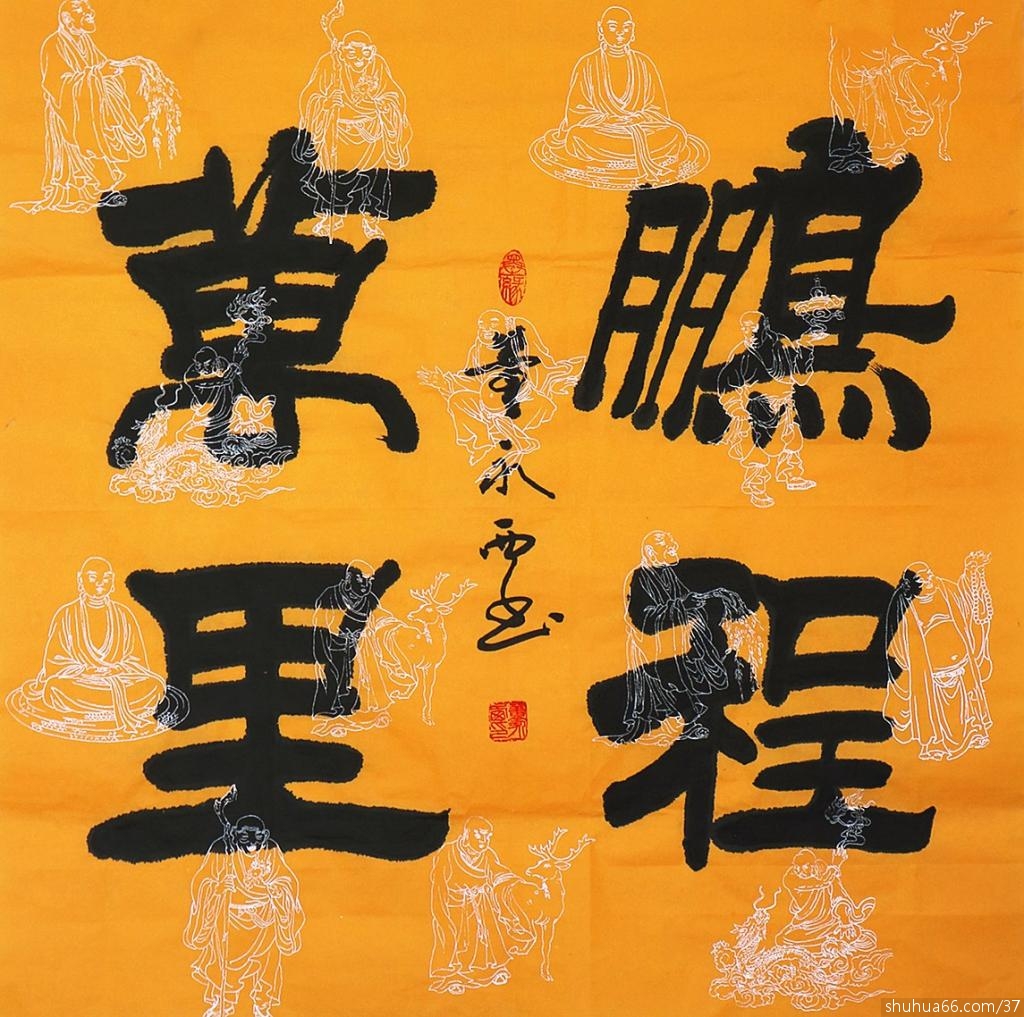 鵬程
萬里
永西书
shuhua66.com/37